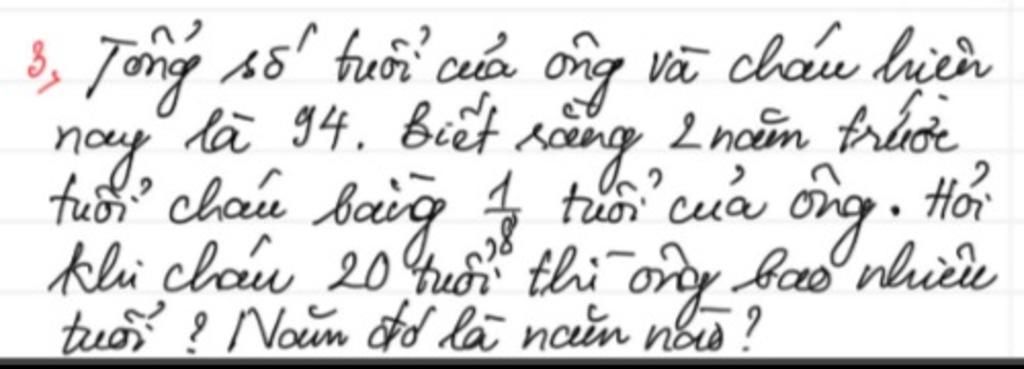 3, Tổng số tuổi của ông và cháu hiện
nay là 94. Biết rằng 2 năm trước
tuổi cháu bằng 1/8 tuổi của ông. Hỏi
khi cháu 20 tuổi thì ông bao nhiêu
tuổi? Năm đó là năm nào?